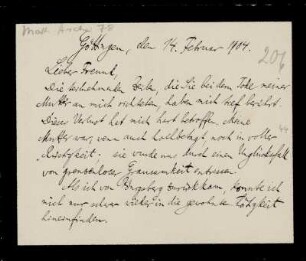 Math. Archiv 78
206
Göttingen, den 14. Februar 1904.
Lieber Freund,
Die teilnehmenden Zeilen, die Sie bei dem Tode meiner
Mutter an mich richteten, haben mich tief berührt.
Dieser Verlust hat mich hart betroffen. Meine
Mutter war, wenn auch hochbetagt, noch in voller
Rüstigkeit; sie wurde uns durch einen Unglücksfall
von grenzenloser Grausamkeit entrissen.
Als ich von Königsberg zurückkam, konnte ich
mich nur schwer wieder in die gewohnte Tätigkeit
hineinfinden.